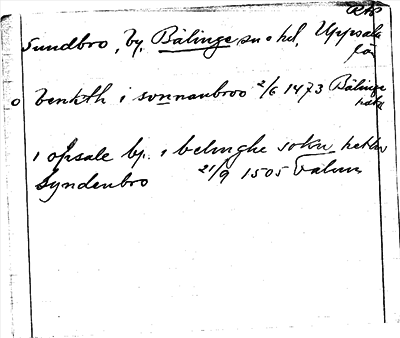 Sundbro, by, Bälinge sn o hd, Uppsala
län
benkth i sonnanbroo 2/6 1473 Bälinge
i opsale by. i belinghe sokn
Syndenbro 21/9 1505